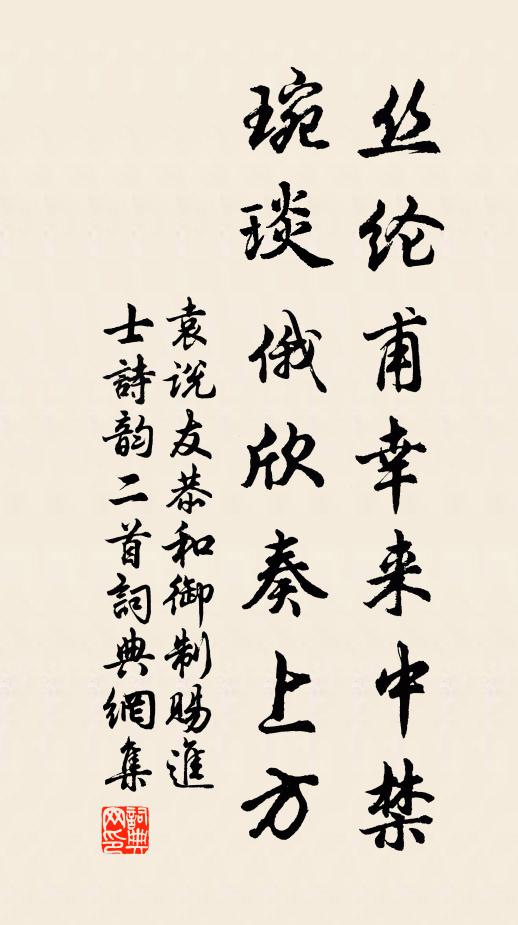 丝纶甫幸来中禁
琬琰俄欣奏上方
袁说友恭和御制赐進
士詩韵二首詞典網集
詞典
网印